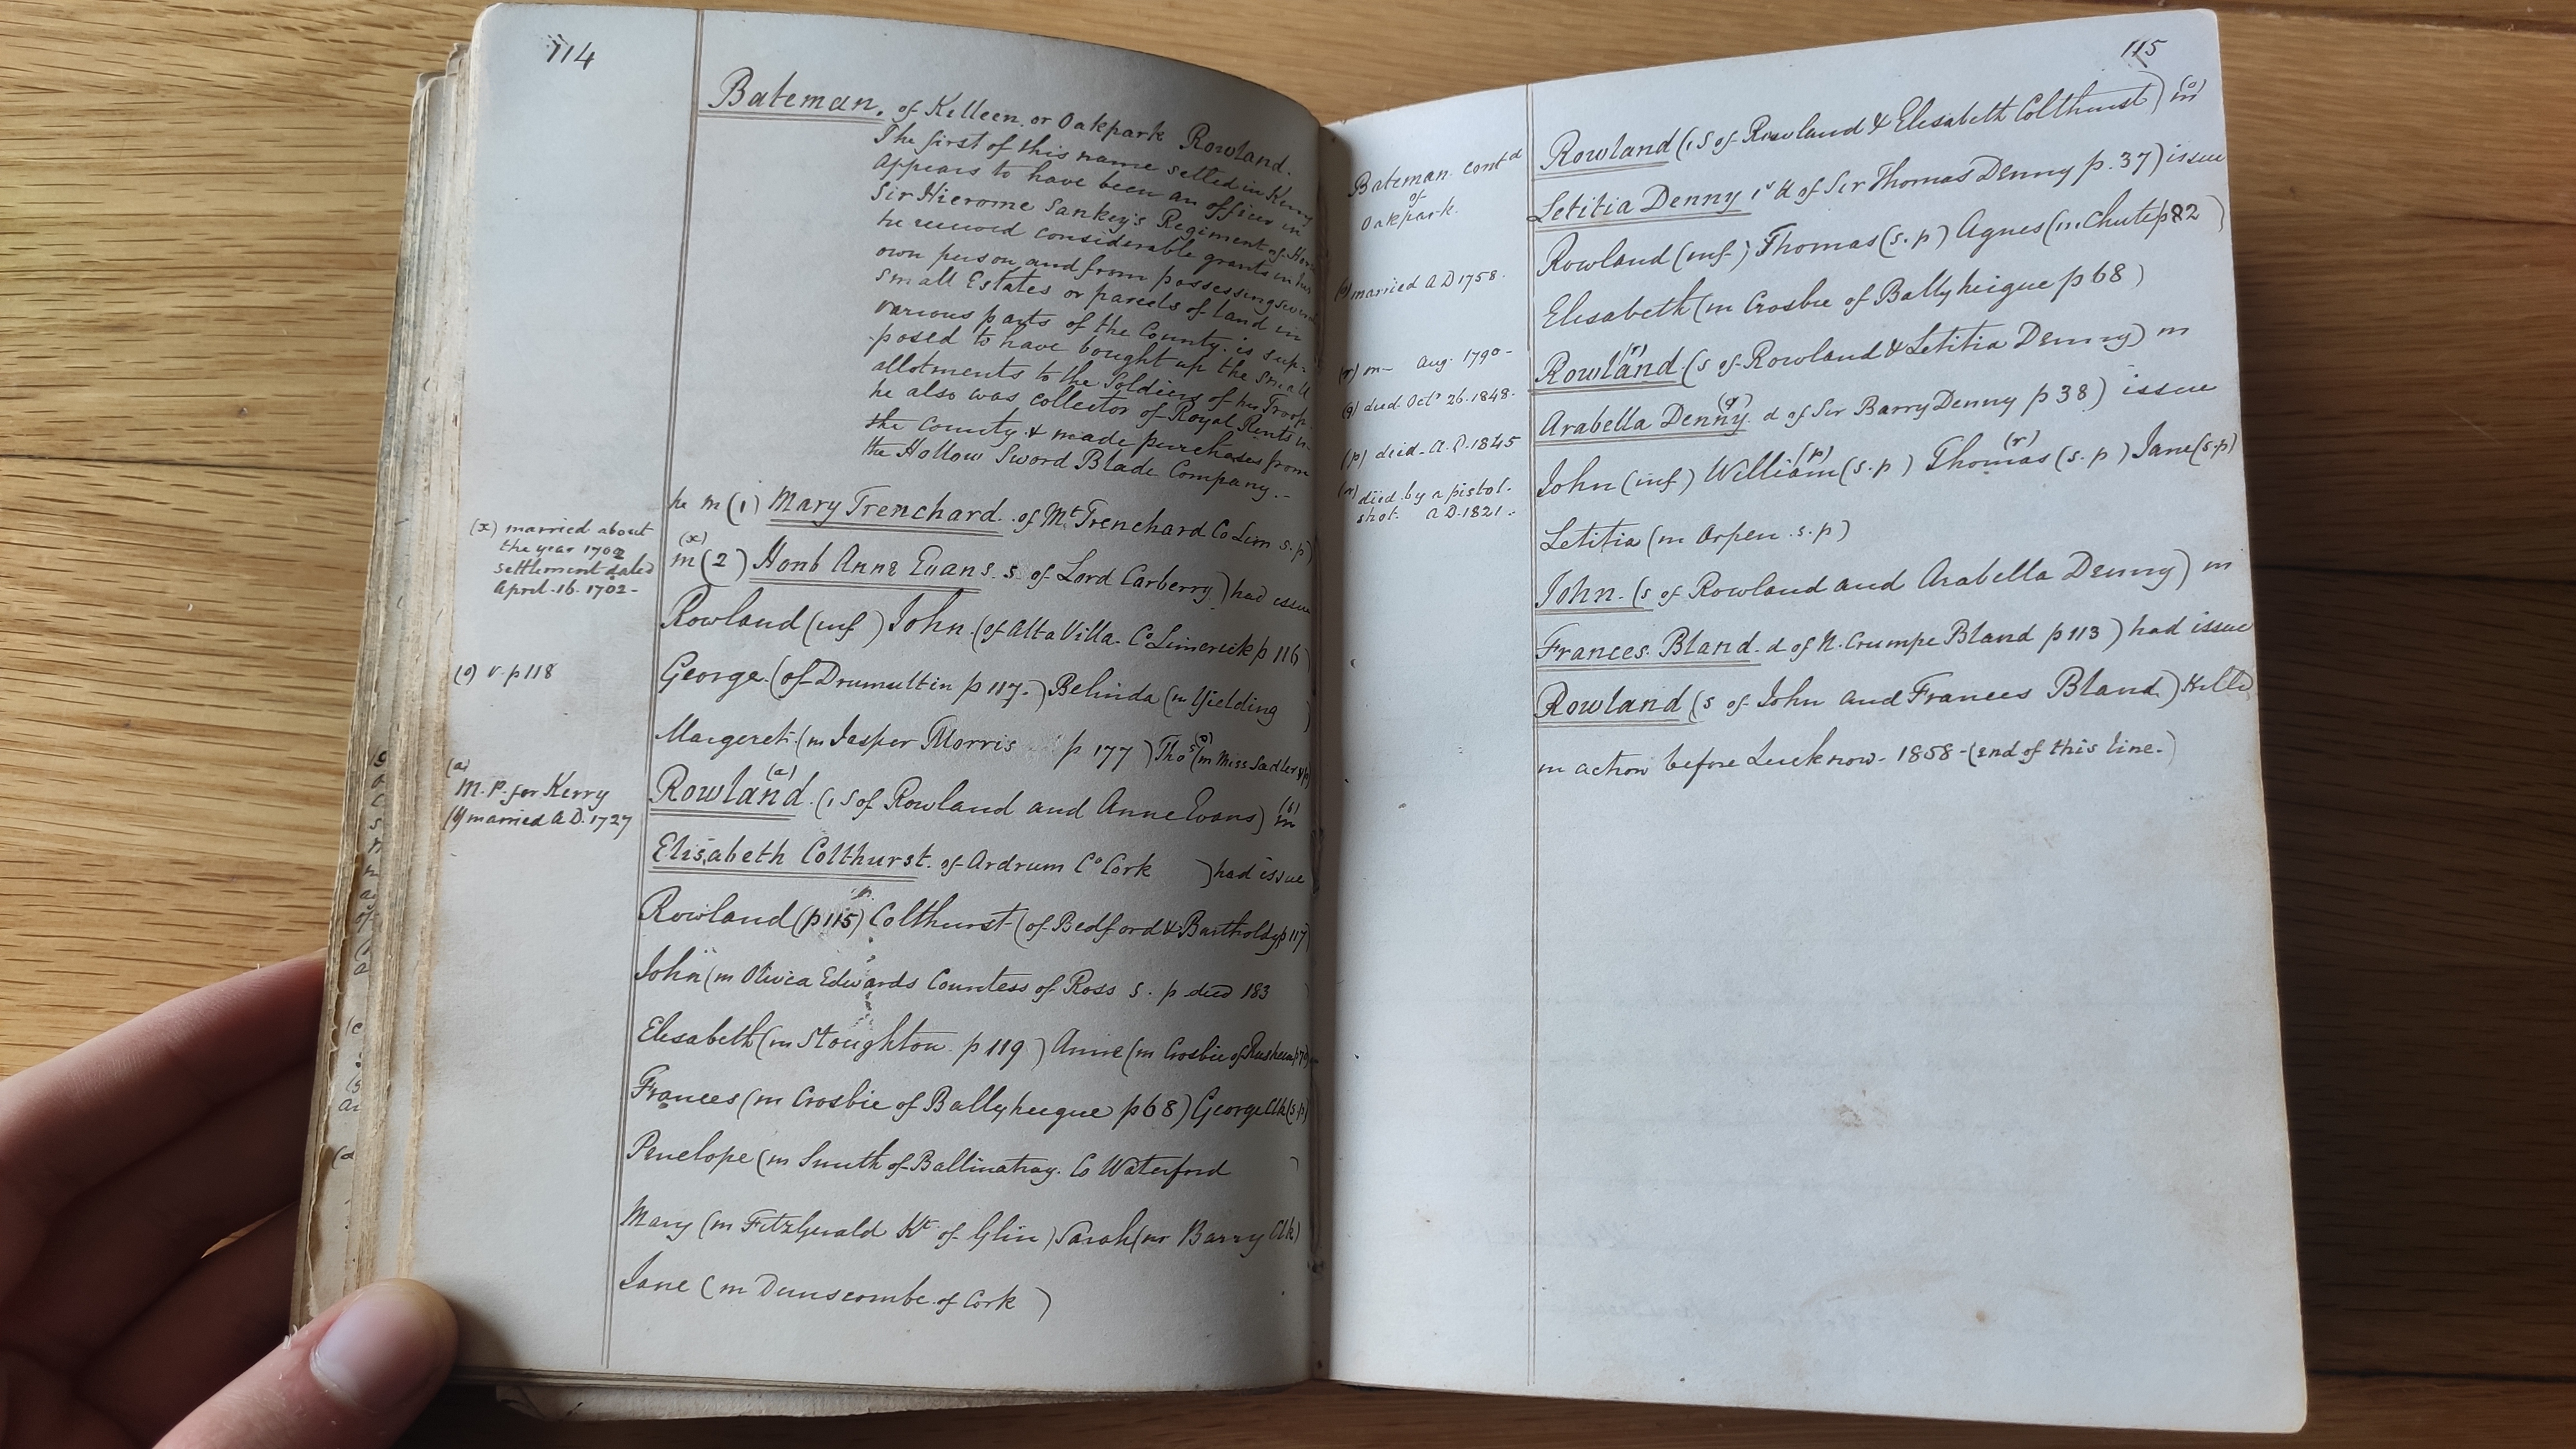 114
Bateman. of Killeen or Oakpark Rowland.
The first of this name settled in Kerry
appears to have been an officer in
Sir Hierome Sankey's Regiment of Horse
he received considerable grants in his
own person and from possessing several
small Estates or parcels of land in
various parts of the County. is sup-
posed to have bought up the small
allotments to the Soldiers of his Troop
he also was collector of Royal Rents in
the County & made purchases from
the Hollow Sword Blade Company.-
he m (1) Mary Trenchard. of Mt Trenchard Co Lim s.p)
(x) married about
the year 1702
settlement dated
April.16.1702-
(x)
m (2) Honb Anne Evans. s. of Lord Carberry) had issue
Rowland (inf) John. (of Alta Villa. Co Limerick p 116)
(o) v. p 118
George. (of Drumultin p 117.) Belinda (m Yielding )
Margeret. (m Jasper Morris p 177) Thos (o) (m Miss Sadler
(a)
M.P. for Kerry
(b) married A.D. 1727
Rowland (a). (1 S of Rowland and Anne Evans) (b) m
Elisabeth Colthurst. of Ardrum Co Cork ) had issue
Rowland (p 115) Colthurst (of Bedford & Bartholdy p 117)
John (m Olivia Edwards Countess of Ross s. p died 183 )
Elisabeth (m Stoughton p 119) Anne (m Crosbie of
Frances (m Crosbie of Ballyheigue p 68) George Clk (s.p)
Penelope (m Smith of Ballinatray. Co Waterford )
Mary (m FitzGerald Kt of Glin) Sarah (m Barry Clk)
Jane (m Dunscombe of Cork )
115
Bateman. contd
of
Oakpark.
Rowland (1 S of Rowland & Elisabeth Colthurst) (o) m
Letitia Denny 1st d of Sir Thomas Denny p. 37) issue
Rowland (inf) Thomas (s.p) Agnes (m. Chute p 82 )
(o) married A D 1758.
Elisabeth (m Crosbie of Ballyheigue p 68)
(r) m- Aug. 1790-
Rowland (r). (s of Rowland & Letitia Denny) m
(q) died Octr 26.1848.
Arabella Denny (q). d of Sir Barry Denny p 38) issue
(p) died. A.D. 1845
John (inf) William (p) (s.p) Thomas (r) (s.p) Jane (s.p)
(r) died by a pistol.
shot. A.D. 1821.
Letitia (m Orpen s.p)
John. (s of Rowland and Arabella Denny) m
Frances Bland. d of N. Crumpe Bland p 113) had issue
Rowland (s of John and Frances Bland) Killed
in action before Lucknow. 1858-(end of this line.)